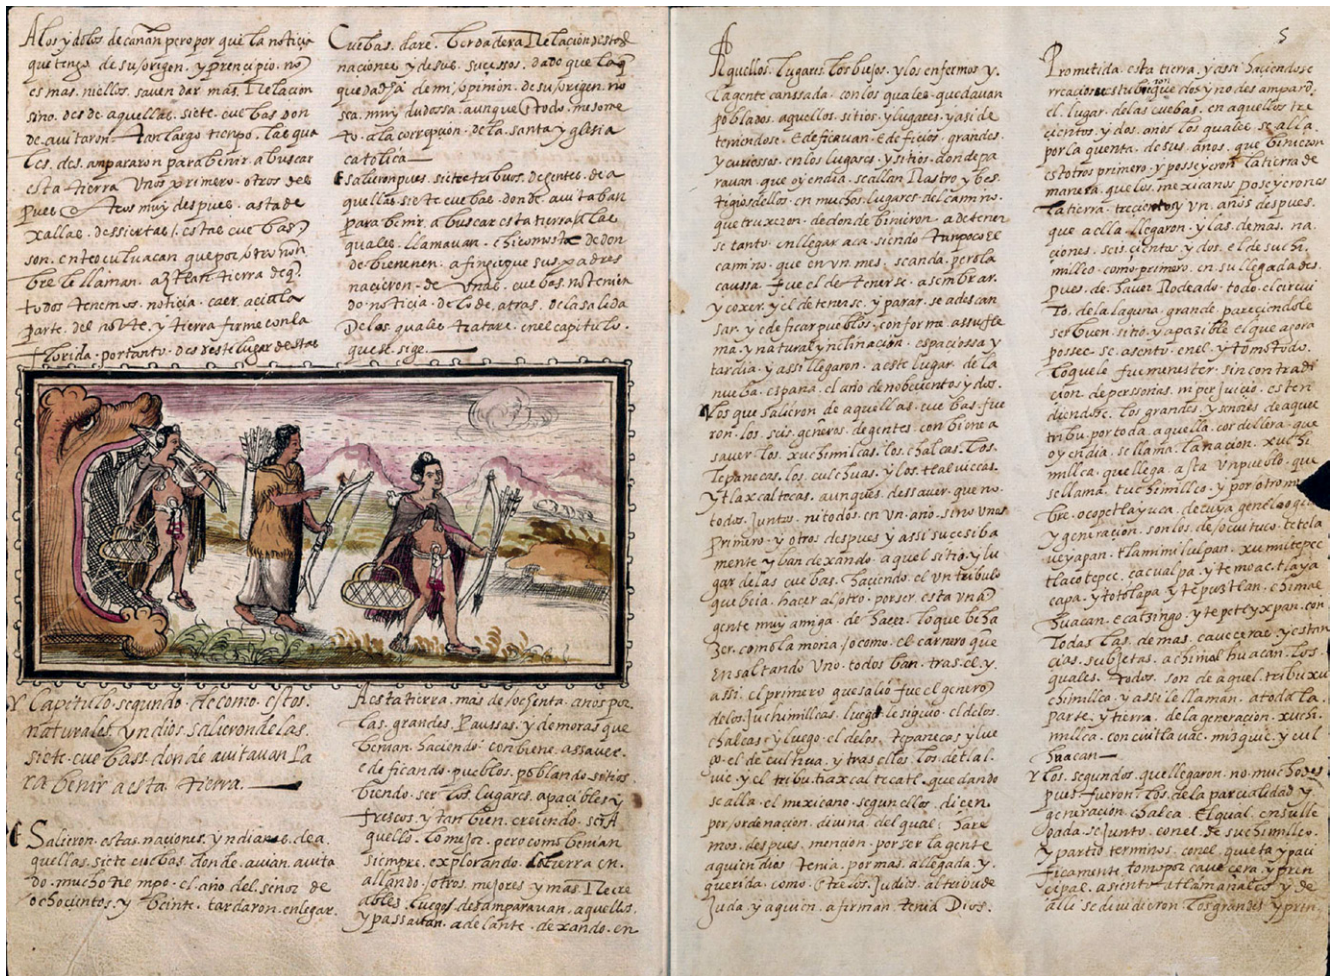 A los ydolos de canan pero por que la noticia
que tengo de su origen y prencipio no
es mas ni ellos saven dar mas Relacion
sino desde aquellas siete cuebas don
de avitaron tan largo tiempo las qua
les desampararon para benir a buscar
esta tierra unos primero otros des
pues otros muy despues asta de
xallas dessiertas estas cuebas
son en teoculuacan que por otro nom
bre le llaman aztlan tierra de q
todos tenemos noticia caer acia la
parte del norte y tierra firme con la
florida por tanto desde este lugar de estas
Cuebas dare berdadera Relacion destas
naciones y de sus sucessos dado que la q
queda de mi opinion de su origen no
sea muy dudossa aunque todo me some
to a la correpcion de la santa yglesia
catolica
salieron pues siete tribus de gentes de a
quellas siete cuebas donde avitaban
para benir a buscar esta tierra a las
quales llamavan chicomostoc de don
de bienen a fingir que sus padres
nacieron de unas cuebas no tenien
do noticia de lo de atras de la salida
de los quales tratare en el capitulo
que se sige
Y Capitulo segundo de como estos
naturales yndios salieron de las
siete cuebas donde avitavan pa
ra benir a esta tierra
Salieron estas naciones yndianas de a
quellas siete cuebas donde avian avita
do mucho tiempo el año del señor de
ochocientos y beinte tardaron en llegar
A esta tierra mas de ochenta años por
las grandes paussas y demoras que
benian haciendo conbiene a saver
edeficando pueblos poblando sitios
biendo ser los lugares apacibles y
frescos y tan bien creiendo ser A
quello lo mejor pero como benian
siempre explorando la tierra en
allando otros mejores y mas Recre
ables luego desamparavan aquellos
y passavan adelante dexando en
5
Aquellos lugares los biejos y los enfermos y
la gente canssada con los quales quedavan
poblados aquellos sitios y lugares y asi de
teniendose edeficavan edeficios grandes
y curiossos en los lugares y sitios donde pa
ravan que oy en dia se allan Rastro y bes
tigios dellos en muchos lugares del camino
que truxeron de donde binieron a detener
se tanto en llegar aca siendo tan poco el
camino que en un mes se anda pero la
caussa fue el detenerse a sembrar
y coxer y el detenerse y parar se a descan
sar y edeficar pueblos conforme a ssu fle
ma y natural ynclinacion espaciossa y
tardia y assi llegaron a este lugar de la
nueba españa el año de nobecientos y dos
los que salieron de aquellas cuebas fue
ron los seis generos de gentes conbiene a
saver los xuchimilcas los chalcas los
tepanecas los culchuas y los tlalviccas
y tlaxcaltecas aunque es de ssaver que no
todos juntos ni todos en un año sino unos
primero y otros despues y assi sucesiba
mente yban dexando aquel sitio y lu
gar de las cuebas haciendo el un tribu lo
que beia hacer al otro por ser esta una
gente muy amiga de hacer lo que be ha
zer como la mona o como el carnero que
en saltando uno todos ban tras el y
assi el primero que salio fue el genero
de los suchimilcas luego le siguio el de los
chalcas y luego el de los tepanecas y lue
go el de culhua y tras ellos los de tlal
vic y el tribu tlaxcaltecatl quedando
se alla el mexicano segun ellos dicen
por ordenacion divina del qual hare
mos despues mencion por ser la gente
a quien dios tenia por mas allegada y
querida como entre los judios al tribu de
Juda y a quien afirman tenia Dios
Prometida esta tierra y assi haciendose
y no desamparo
el lugar de las cuebas en aquellos tre
cientos y dos años los quales se alla
por la quenta de sus años que binieron
estotros primero y posseyeron la tierra de
manera que los mexicanos poseyeron
la tierra trecientos y un años despues
que aca llegaron y las demas na
ciones seiscientos y dos el de suchi
milco como primero en su llegada des
pues de haver Rodeado todo el circui
to de la laguna grande pareciendole
ser buen sitio y apazible el que agora
possee se asento en el y tomo todo
lo que le fue menester sin contradi
cion de perssonas ni perjuicio esten
diendose los grandes y señores de aquel
tribu por toda aquella cordellera que
oy en dia se llama la nacion xuchi
milca que llega asta un pueblo que
se llama tuchimilco y por otro nom
bre ocopetlayuca de cuya genelogi
y generacion son los de ocuituco tetela
ueyapan tlamimilulpan xumiltepec
tlacotepec cacualpa y temoac tlaya
capa y totolapa y tepuztlan chimal
huacan ecatzingo y tepetlyxpan con
todas las demas caveceras y estan
cias subjetas a chimalhuacan los
quales todos son de aquel tribu xu
chimilco y assi le llaman a toda la
parte y tierra de la generacion xuchi
milca con cuitlavac mizquic y cul
huacan
Y los segundos que llegaron no mucho des
pues fueron los de la parcialidad y
generacion chalca El qual en su lle
gada se junto con el de suchimilco
y partio terminos con el quieta y paci
ficamente tomo por cavecera y prin
cipal asiento a tlalmanalco y de
alli se dividieron los grandes y prin